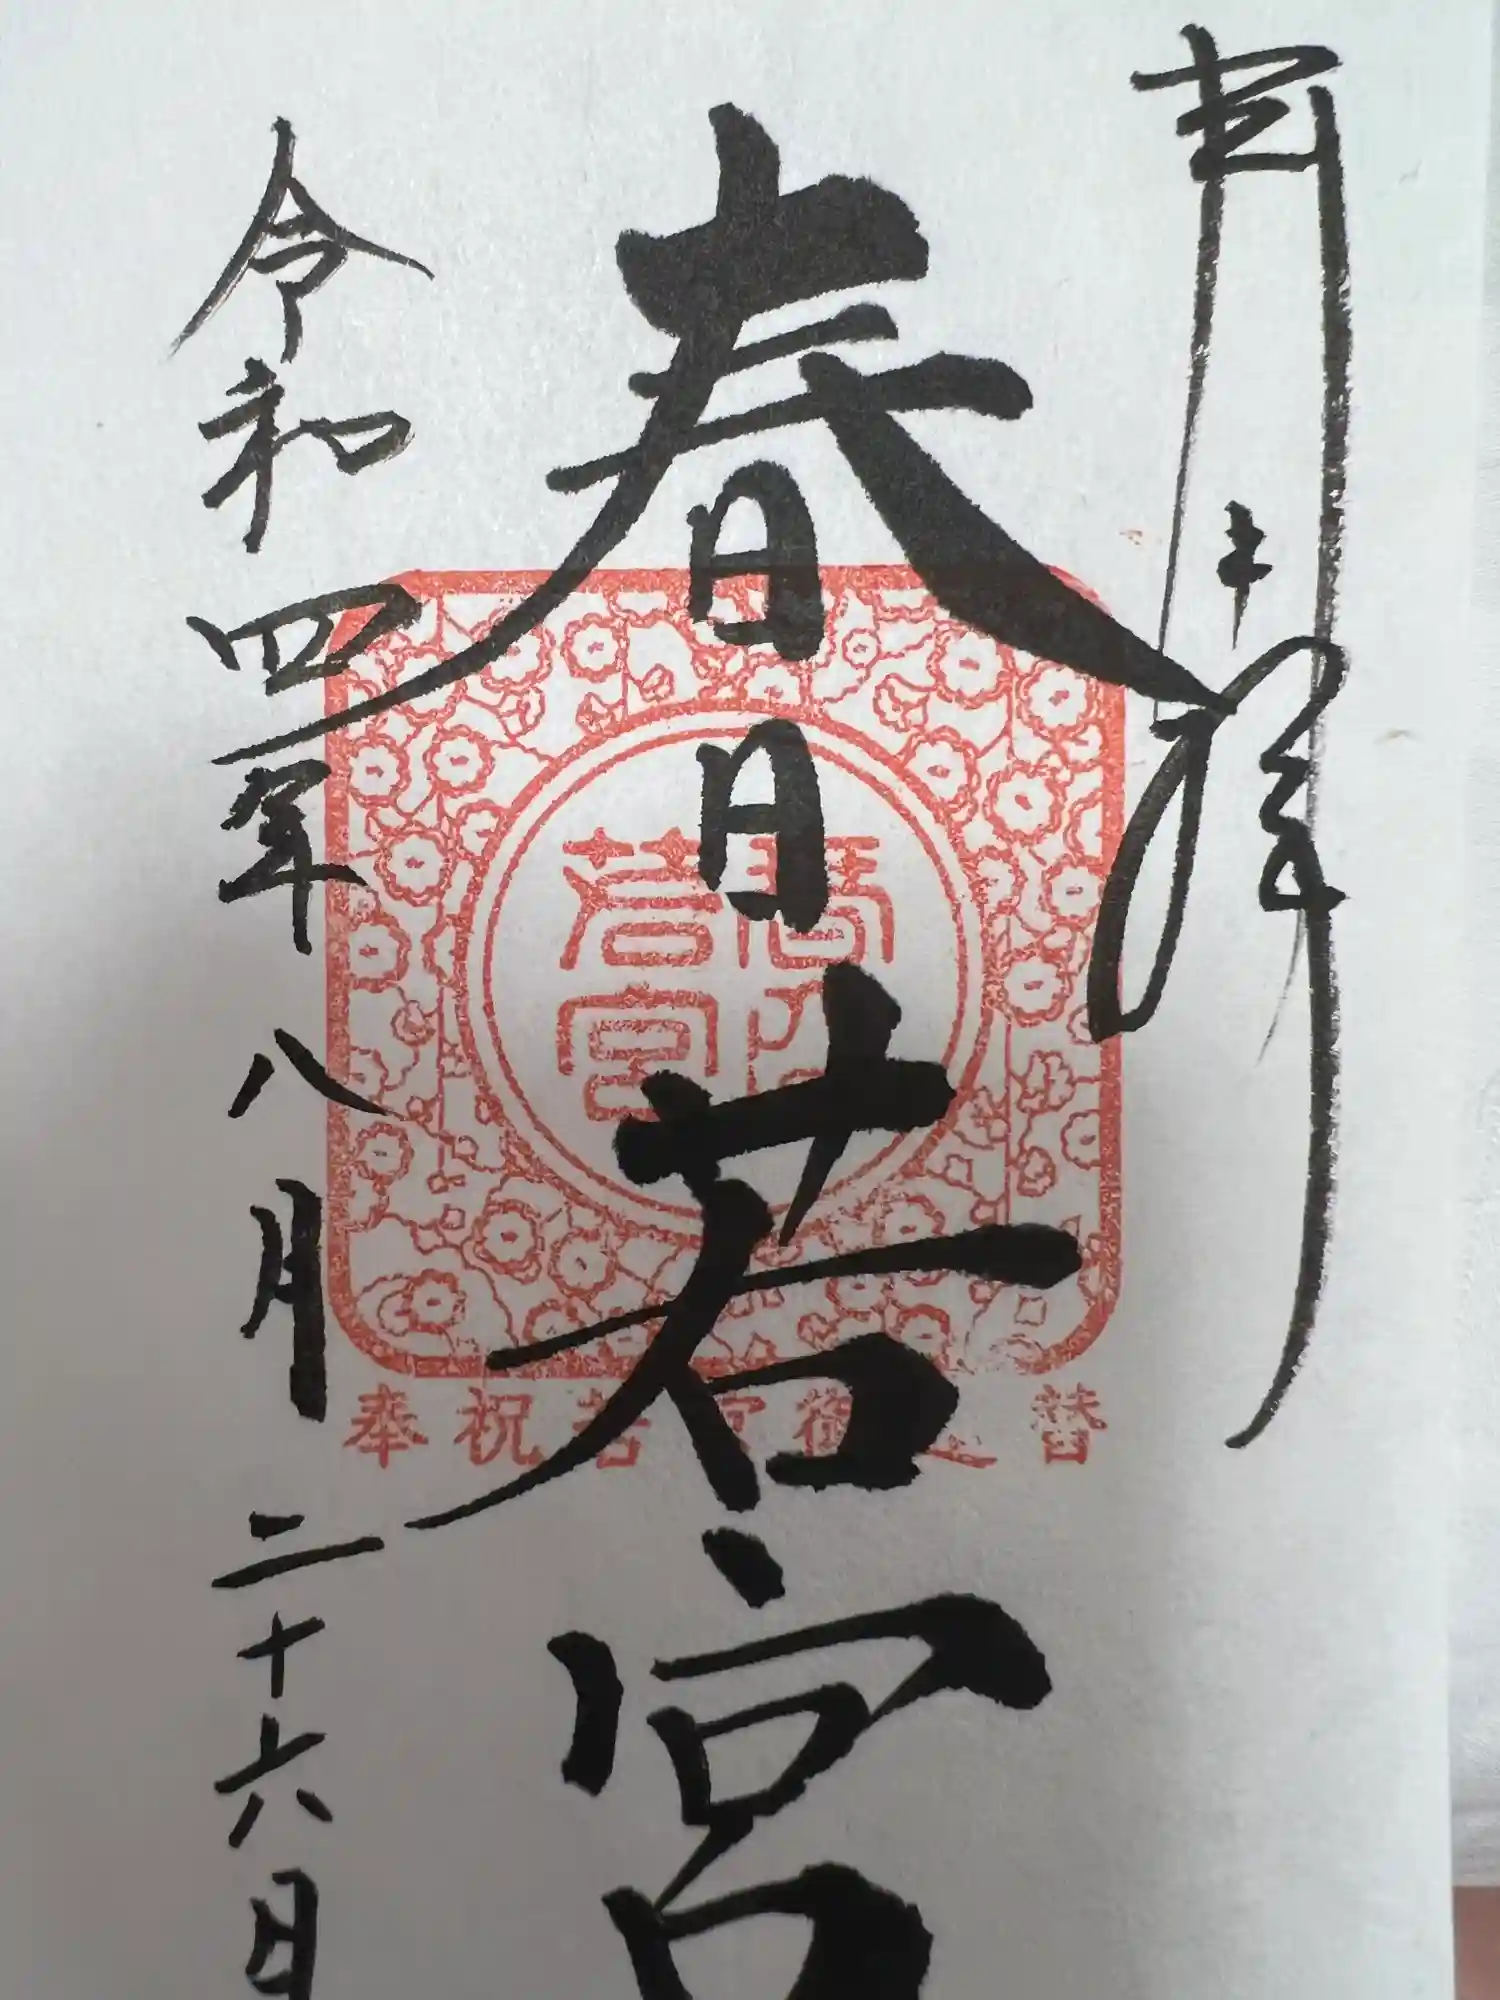 奉拝
春日若宮
令和四年八月二十六日
春日
若宮
奉祝若宮御造替